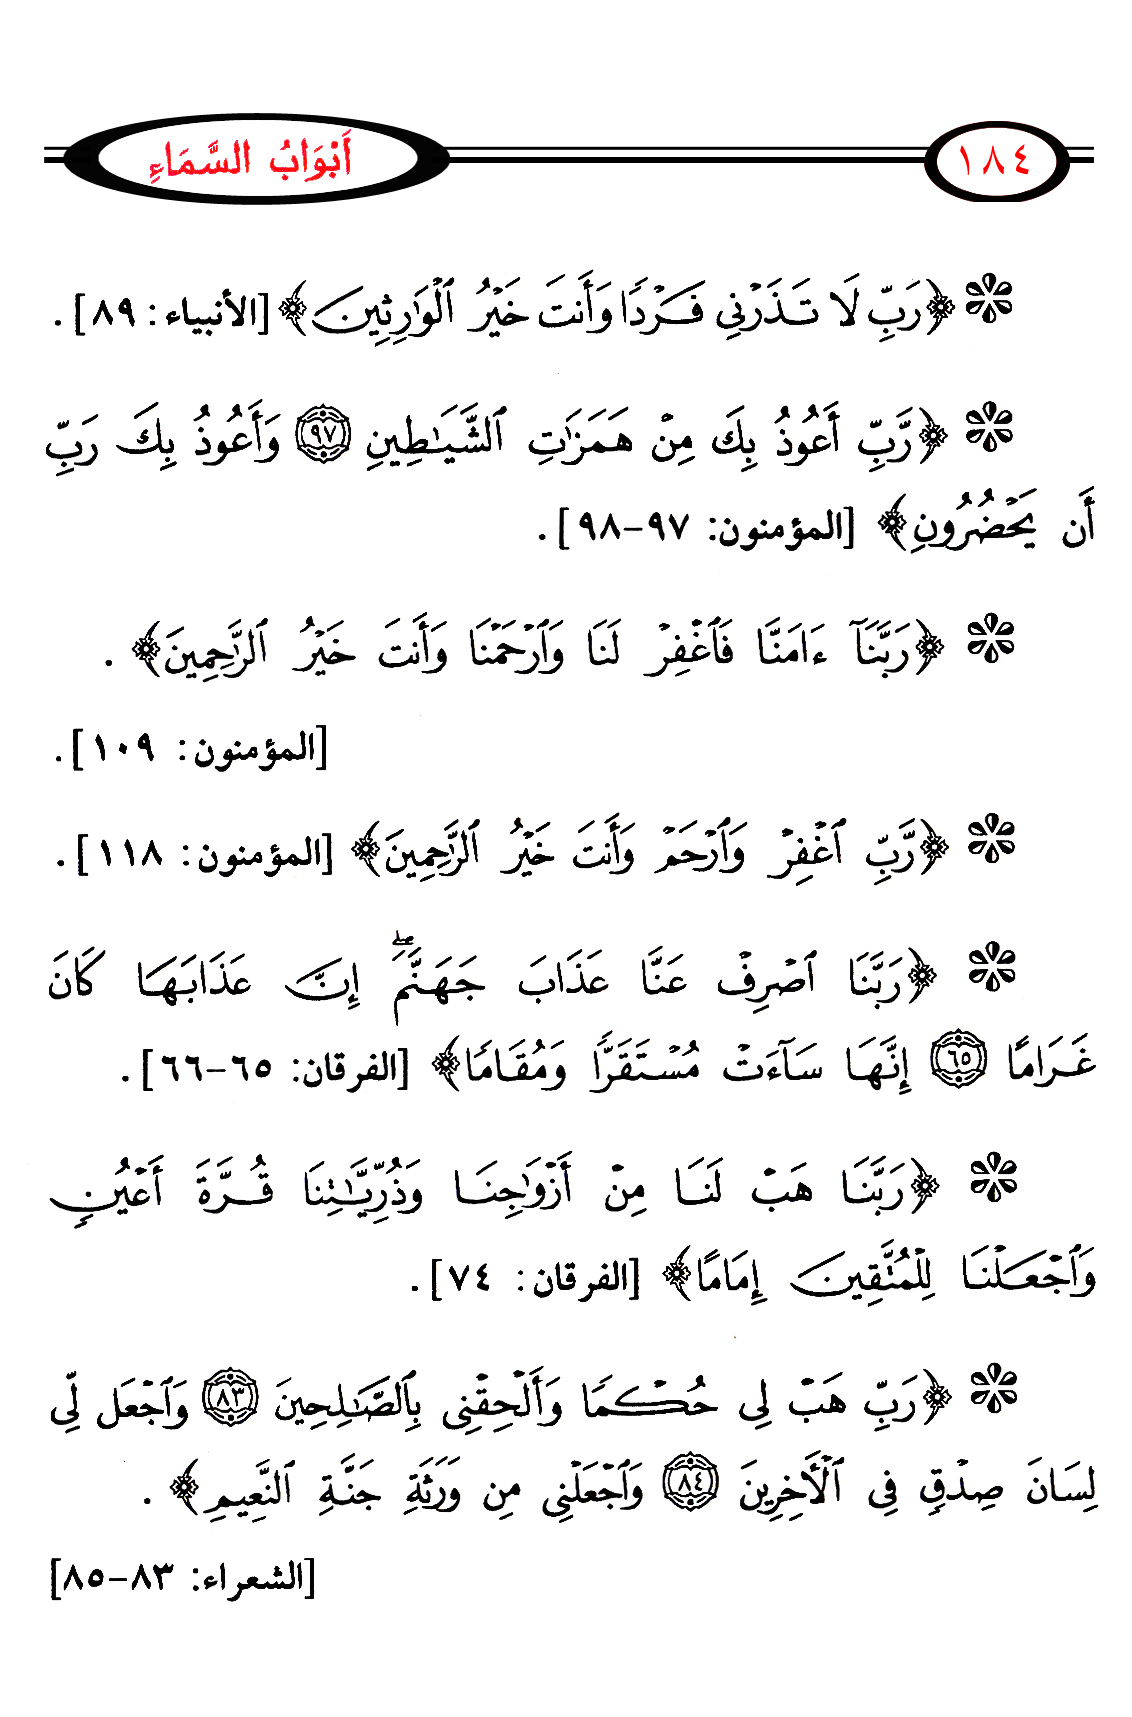 ١٨٤ أَبْوَابُ السَّمَاءِ
﴿رَبِّ لَا تَذَرْنِى فَرْدًا وَأَنتَ خَيْرُ ٱلْوَٰرِثِينَ﴾ [الأنبياء: ٨٩].
﴿رَّبِّ أَعُوذُ بِكَ مِنْ هَمَزَٰتِ ٱلشَّيَٰطِينِ ٩٧ وَأَعُوذُ بِكَ رَبِّ
أَن يَحْضُرُونِ﴾ [المؤمنون: ٩٧-٩٨].
﴿رَبَّنَآ ءَامَنَّا فَٱغْفِرْ لَنَا وَٱرْحَمْنَا وَأَنتَ خَيْرُ ٱلرَّٰحِمِينَ﴾.
[المؤمنون: ١٠٩].
﴿رَّبِّ ٱغْفِرْ وَٱرْحَمْ وَأَنتَ خَيْرُ ٱلرَّٰحِمِينَ﴾ [المؤمنون: ١١٨].
﴿رَبَّنَا ٱصْرِفْ عَنَّا عَذَابَ جَهَنَّمَ ۖ إِنَّ عَذَابَهَا كَانَ
غَرَامًا ٦٥ إِنَّهَا سَآءَتْ مُسْتَقَرًّا وَمُقَامًا﴾ [الفرقان: ٦٥-٦٦].
﴿رَبَّنَا هَبْ لَنَا مِنْ أَزْوَٰجِنَا وَذُرِّيَّٰتِنَا قُرَّةَ أَعْيُنٍ
وَٱجْعَلْنَا لِلْمُتَّقِينَ إِمَامًا﴾ [الفرقان: ٧٤].
﴿رَبِّ هَبْ لِى حُكْمًا وَأَلْحِقْنِى بِٱلصَّٰلِحِينَ ٨٣ وَٱجْعَل لِّى
لِسَانَ صِدْقٍ فِى ٱلْأَخِرِينَ ٨٤ وَٱجْعَلْنِى مِن وَرَثَةِ جَنَّةِ ٱلنَّعِيمِ﴾.
[الشعراء: ٨٣-٨٥]